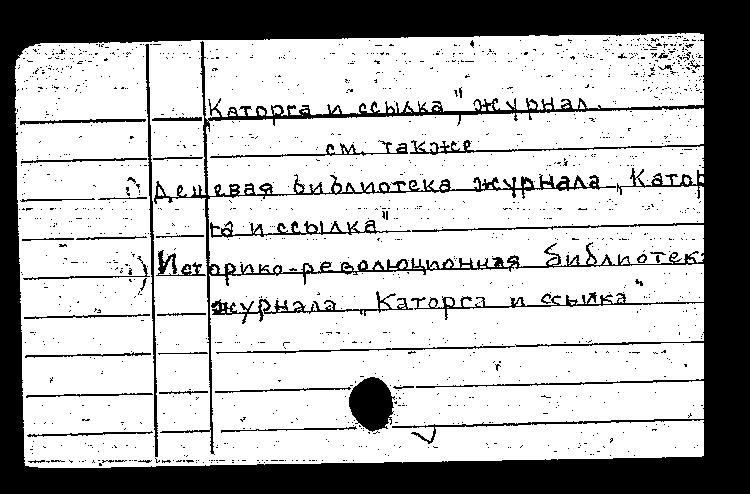 Каторга и ссылка", журнал.
см. также
1) Дешевая библиотека журнала „Катор
га и ссылка"
) Историко-революционная библиотека
журнала „Каторга и ссылка"